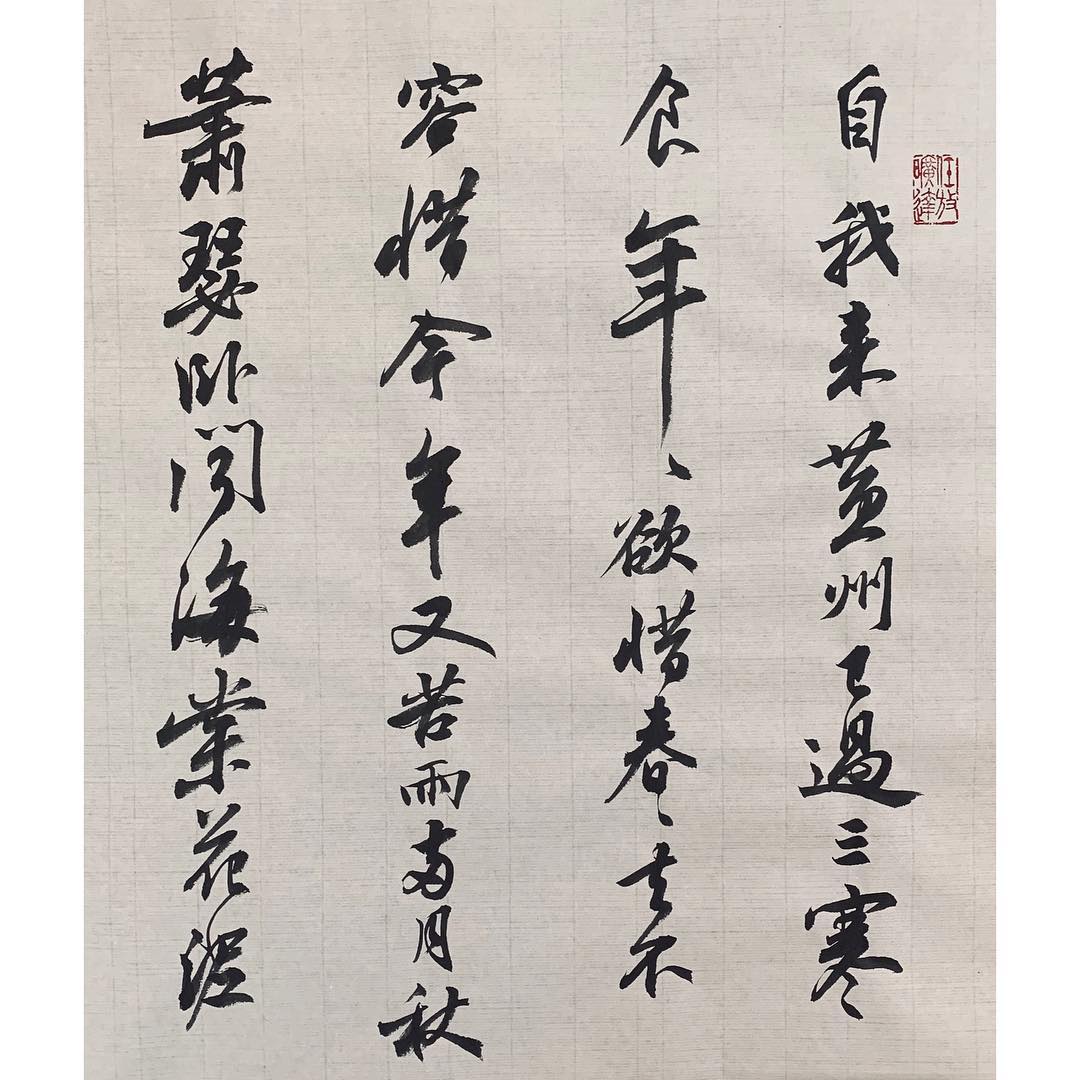 自我来黄州已過三寒
食年〻欲惜春〻去不
容惜今年又苦雨兩月秋
蕭瑟卧聞海棠花泥
任放曠達